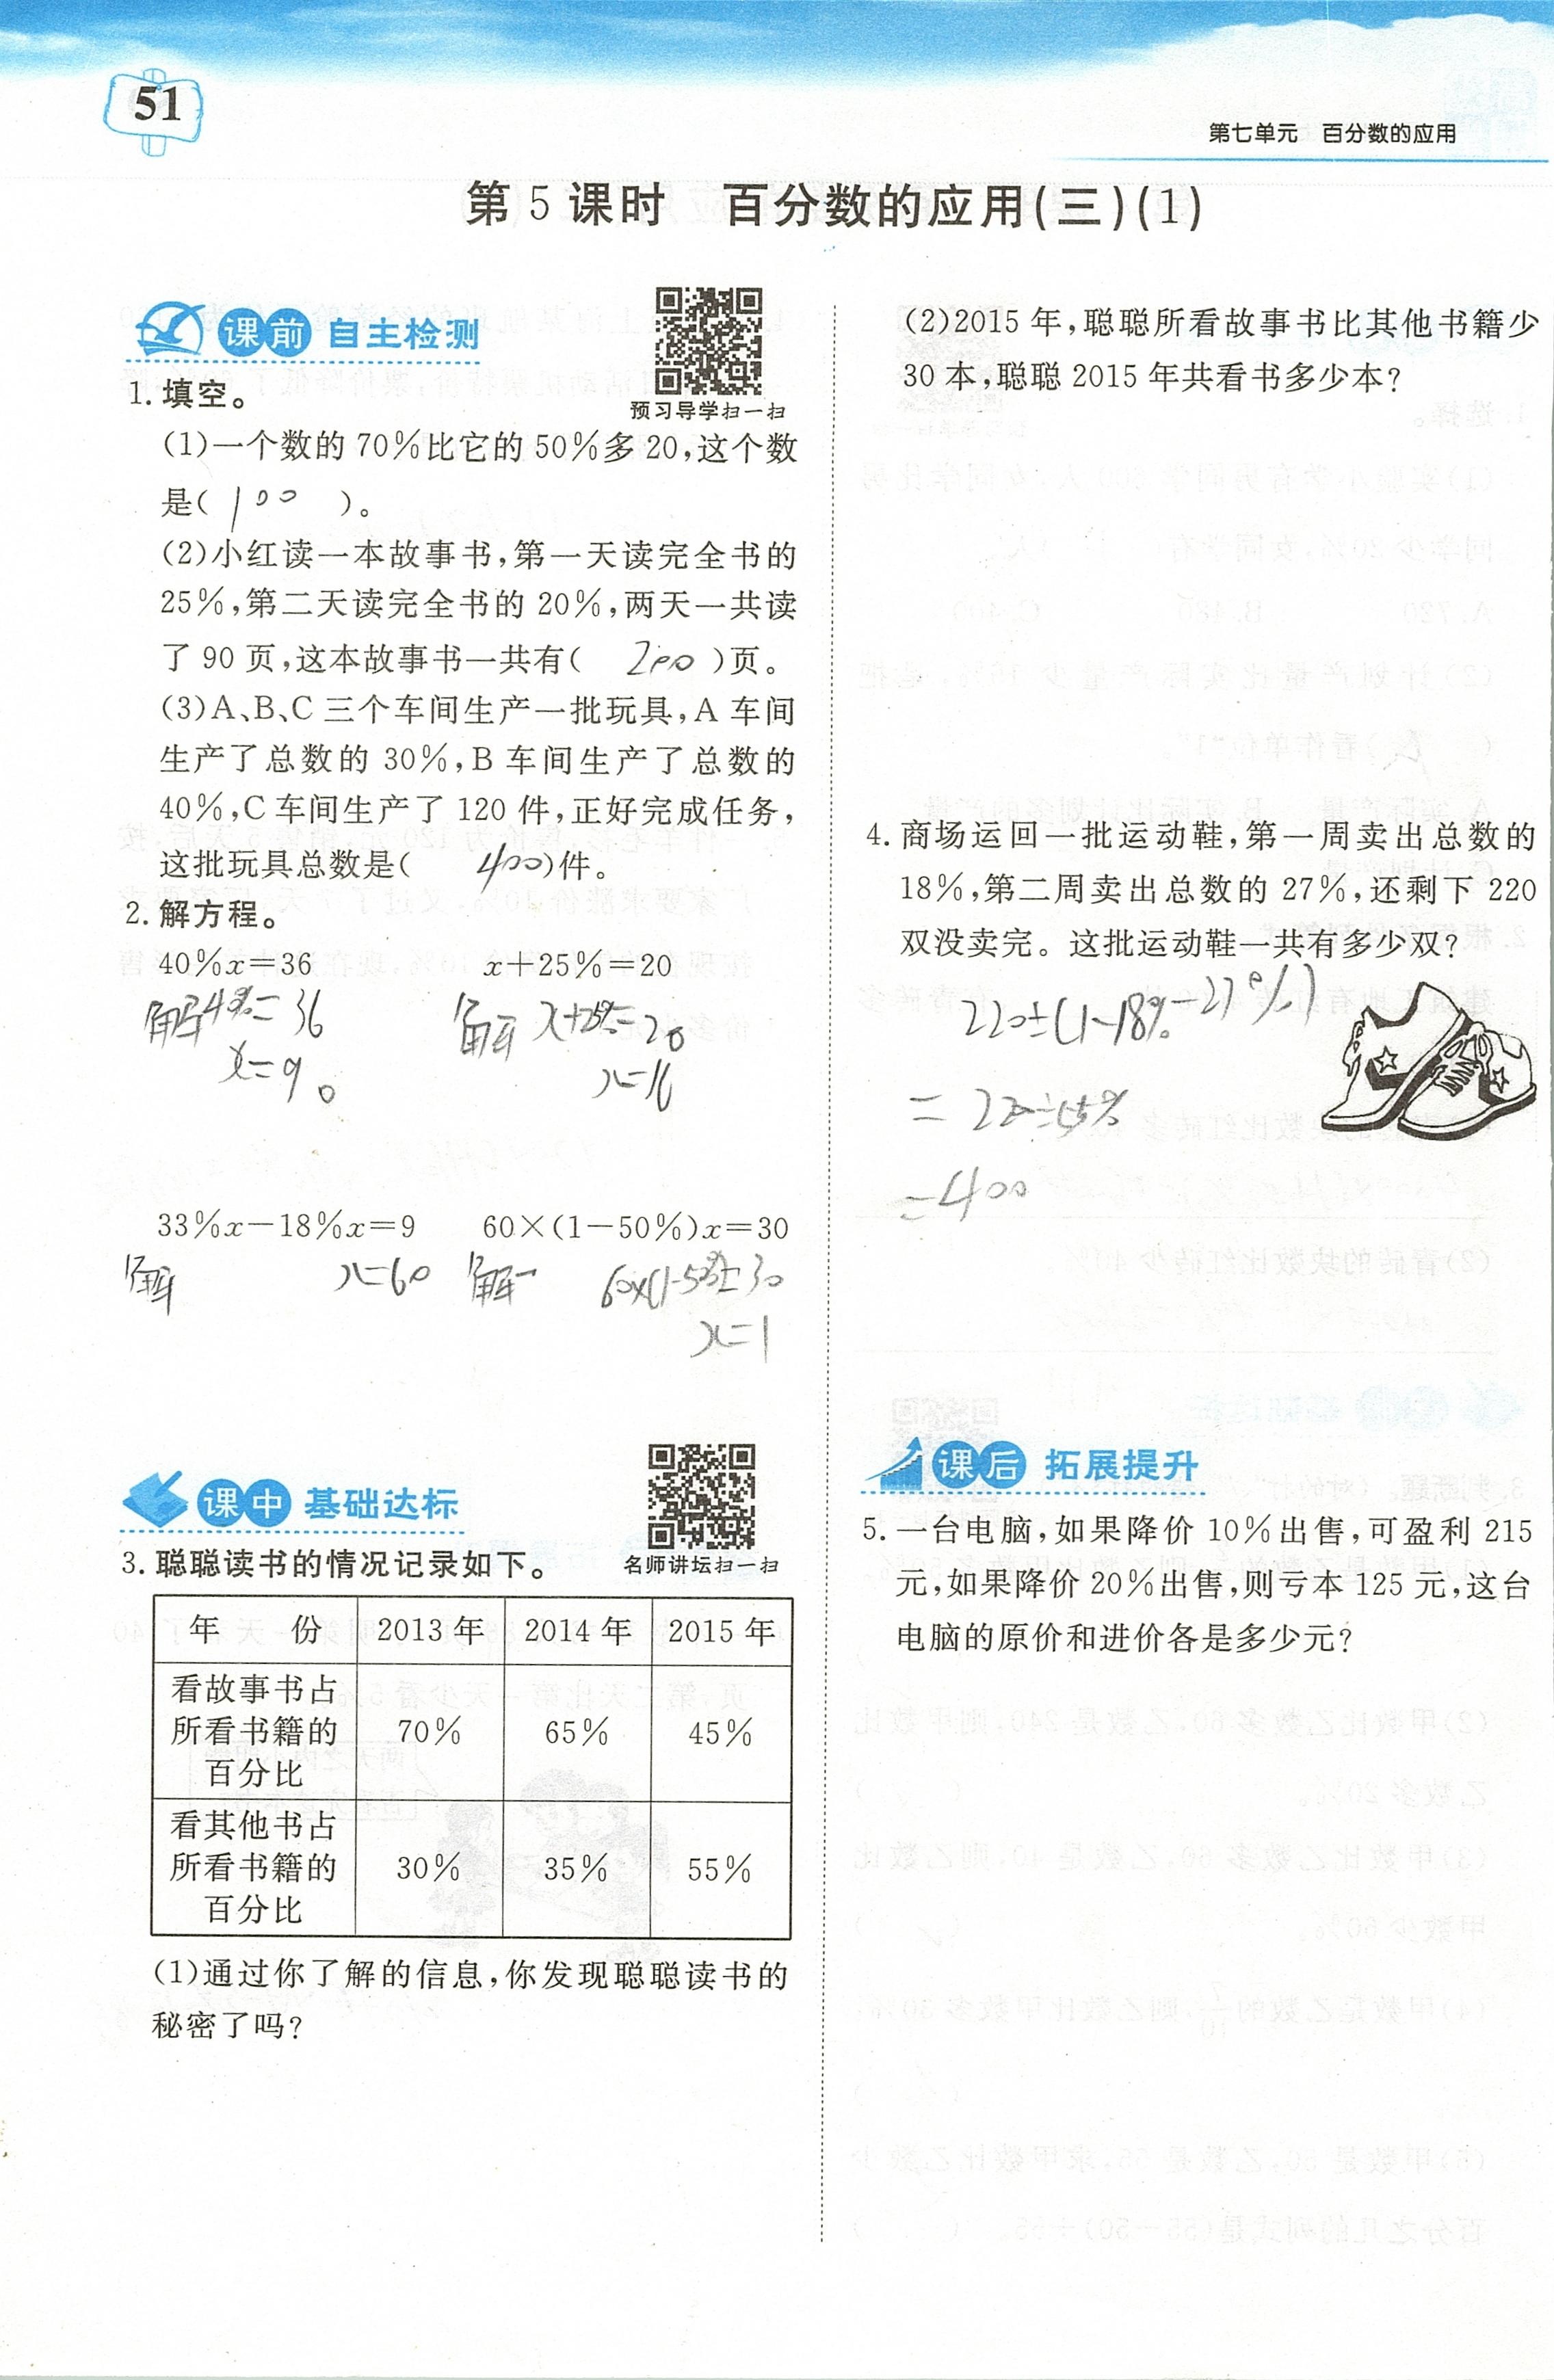 51
第七单元　百分数的应用
第 5 课时　百分数的应用(三)(1)
课前 自主检测
预习导学扫一扫
1. 填空。
(1)一个数的 70%比它的 50%多 20,这个数
是( 100 )。
(2)小红读一本故事书,第一天读完全书的
25%,第二天读完全书的 20%,两天一共读
了 90 页,这本故事书一共有( 200 )页。
(3)A、B、C 三个车间生产一批玩具,A 车间
生产了总数的 30%,B 车间生产了总数的
40%,C 车间生产了 120 件,正好完成任务,
这批玩具总数是( 400 )件。
2. 解方程。
40%x=36　x+25%=20
解 4%= 36　解 x+25%=20
x=90　x=16
33%x-18%x=9　60×(1-50%)x=30
解　x=60　解　60×(1-50%)=30
x=1
课中 基础达标
名师讲坛扫一扫
3. 聪聪读书的情况记录如下。
年　份　2013 年　2014 年　2015 年
看故事书占
所看书籍的　70%　65%　45%
百分比
看其他书占
所看书籍的　30%　35%　55%
百分比
(1)通过你了解的信息,你发现聪聪读书的
秘密了吗?
(2)2015 年,聪聪所看故事书比其他书籍少
30 本,聪聪 2015 年共看书多少本?
4. 商场运回一批运动鞋,第一周卖出总数的
18%,第二周卖出总数的 27%,还剩下 220
双没卖完。这批运动鞋一共有多少双?
220÷(1-18%-27%)
= 220÷55%
=400
课后 拓展提升
5. 一台电脑,如果降价 10%出售,可盈利 215
元,如果降价 20%出售,则亏本 125 元,这台
电脑的原价和进价各是多少元?